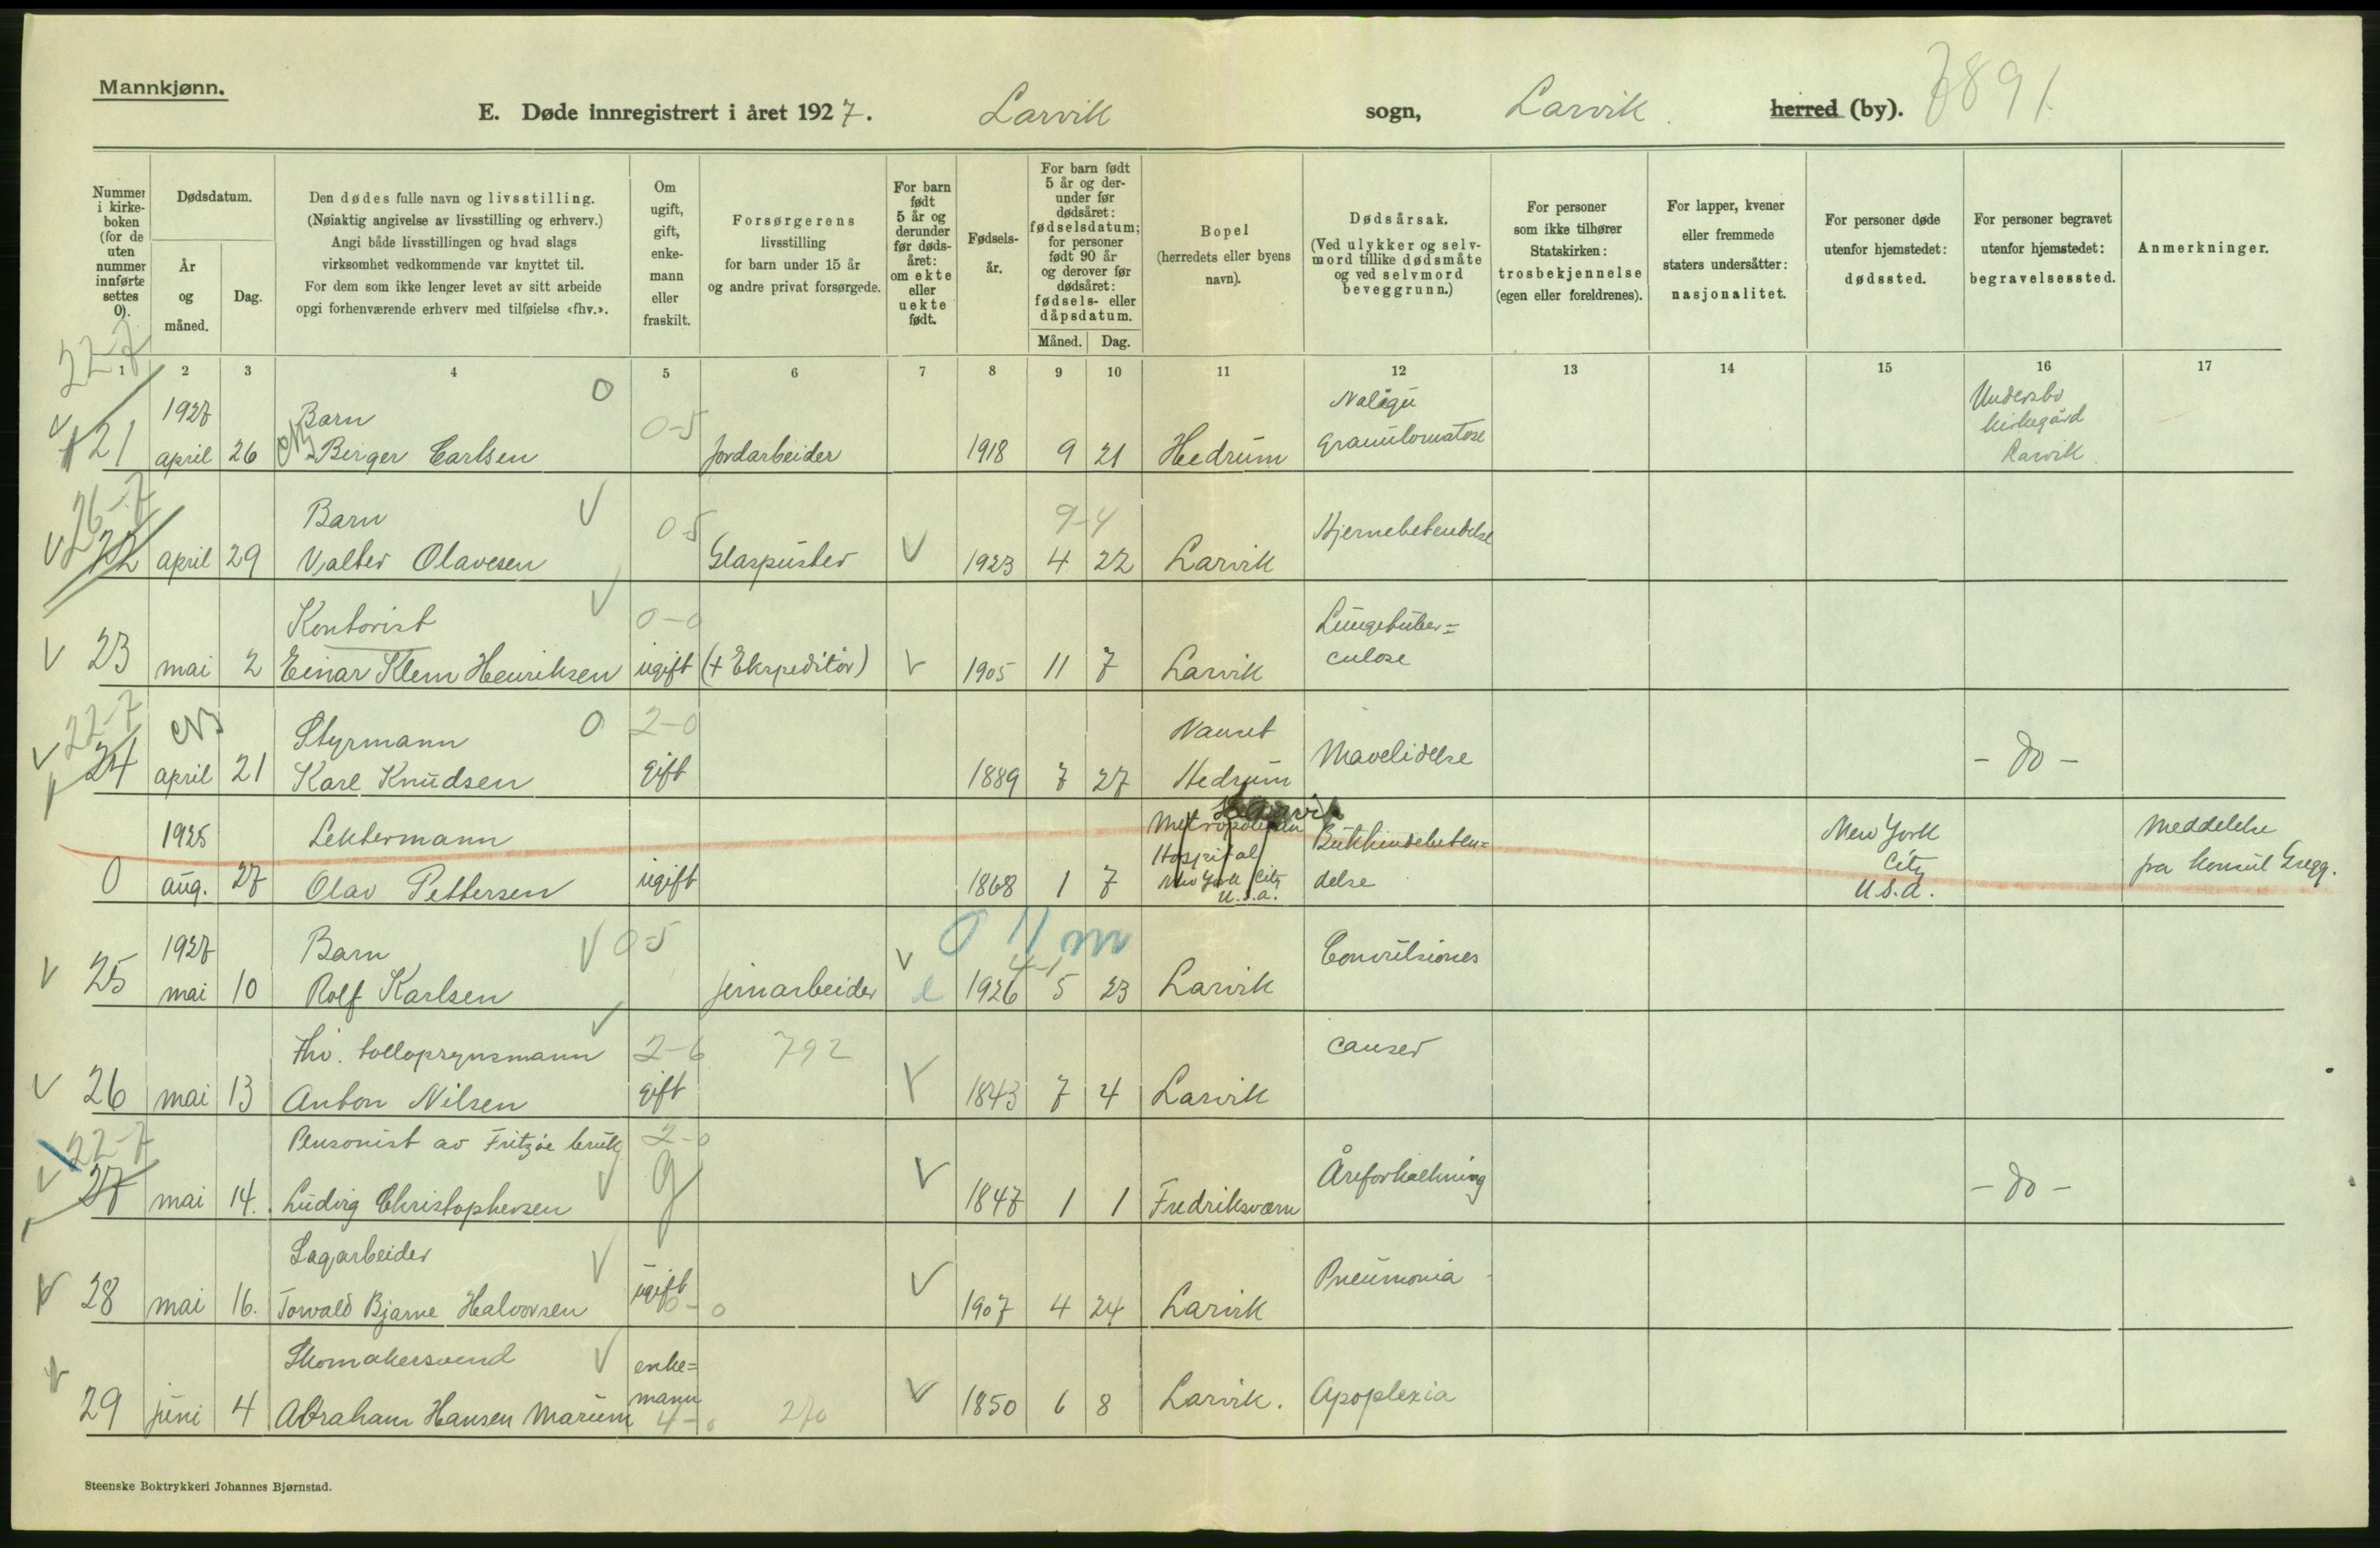 Mannkjønn.
E. Døde innregistrert i året 1927. Larvik sogn, Larvik. herred (by). 7891
Nummer i kirke- boken (for de uten nummer innførte settes 0).
Dødsdatum.
År og måned.
Dag.
Den dødes fulle navn og livsstilling.
(Nøiaktig angivelse av livsstilling og erhverv.)
Angi både livsstillingen og hvad slags
virksomhet vedkommende var knyttet til.
For dem som ikke lenger levet av sitt arbeide
opgi forhenværende erhverv med tilføielse «fhv.».
Om ugift, gift, enke- mann eller fraskilt.
Forsørgerens
livsstilling
for barn under 15 år
og andre privat forsørgede.
For barn født 5 år og derunder før døds- året: om ekte eller uekte født.
Fødsels- år.
For barn født 5 år og der- under før dødsåret: fødselsdatum; for personer født 90 år og derover før dødsåret: fødsels- eller dåpsdatum.
Måned. Dag.
Bopel
(herredets eller byens
navn).
Dødsårsak.
(Ved ulykker og selv-
mord tillike dødsmåte
og ved selvmord
beveggrunn.)
For personer
som ikke tilhører
Statskirken:
trosbekjennelse
(egen eller foreldrenes).
For lapper, kvener
eller fremmede
staters undersåtter:
nasjonalitet.
For personer døde
utenfor hjemstedet:
dødssted.
For personer begravet
utenfor hjemstedet:
begravelsessted.
Anmerkninger.
1 2 3 4 5 6 7 8 9 10 11 12 13 14 15 16 17
22-7
1927 Barn 0 0-5 Undersbo
kirkegård
21 april 26 Birger Carlsen Jordarbeider 1918 9 21 Hedrum Granulomatose Larvik
26-7
Barn 0-5 9-4 Hjernebetendelse
22 april 29 Valter Olavesen Glaspuster 1923 4 22 Larvik
Kontorist 0-0 Lungetuber=
23 mai 2 Einar Klem Henriksen ugift (+ Ekspeditør) 1905 11 7 Larvik culose
22-7
Styrmann 0 2-0 Nanset
24 april 21 Karl Knudsen gift 1889 7 27 Hedrum Mavelidelse - do -
Larvik
1925 Lektermann Metropolitan New York Meddelelse
Hospital City
0 aug. 27 Olav Pettersen ugift 1868 1 7 New York City delse U.S.A. fra konsul Gregg.
U.S.A.
1927 Barn 0-5 0 11 m Convulsiones
4-1
25 mai 10 Rolf Karlsen jernarbeider e 1926 5 23 Larvik
fhv. tollopsynsmann 2-6 792 cancer
26 mai 13 Anton Nilsen gift 1843 7 4 Larvik
22-7 Pensonist av Fritzøe bruk 2-0
g Åreforkalkning
27 mai 14. Ludvig Christophersen 1847 1 1 Fredriksværn - do -
Sagarbeider Pneumonia
28 mai 16. Torvald Bjarne Halvorsen ugift 0-0 1907 4 24 Larvik
Skomakersvend enke=
29 juni 4 Abraham Hansen Marum mann 4-0 270 1850 6 8 Larvik. Apoplexia
Steenske Boktrykkeri Johannes Bjørnstad.